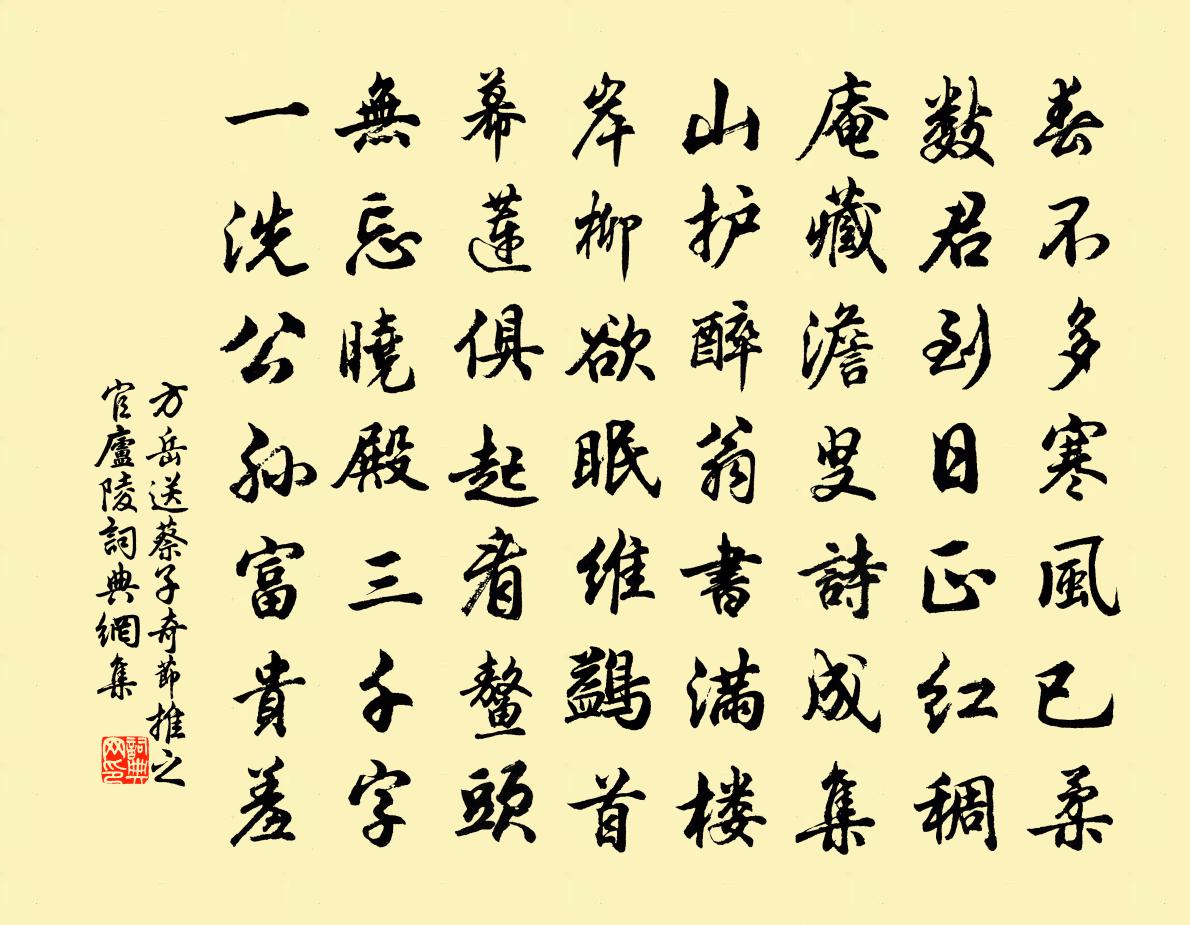 春不多寒風已柔
數君到日正红稠
庵藏澹叟詩成集
山护醉翁書满楼
岸柳欲眠維鷁首
幕蓮俱起看鳌頭
無忘曉殿三千字
一洗公孙富貴羞
方岳送蔡子奇節推之
官廬陵詞典網集
詞典
网印